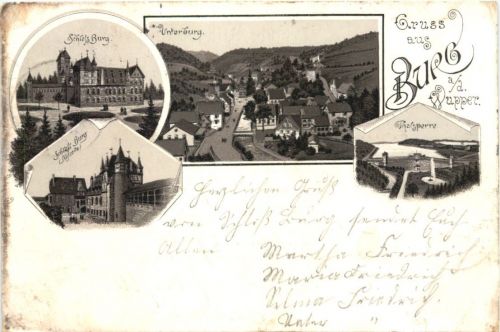 Schloß Burg.
Unterburg.
Gruss
aus
Burg
a/d.
Wupper.
Schloß Burg
Thalsperre.
Herzlichen Gruß
von Schloß Burg sendet Euch
Allen
Martha Friedrich
Maria Friedrich
Selma Friedrich.
Vater "